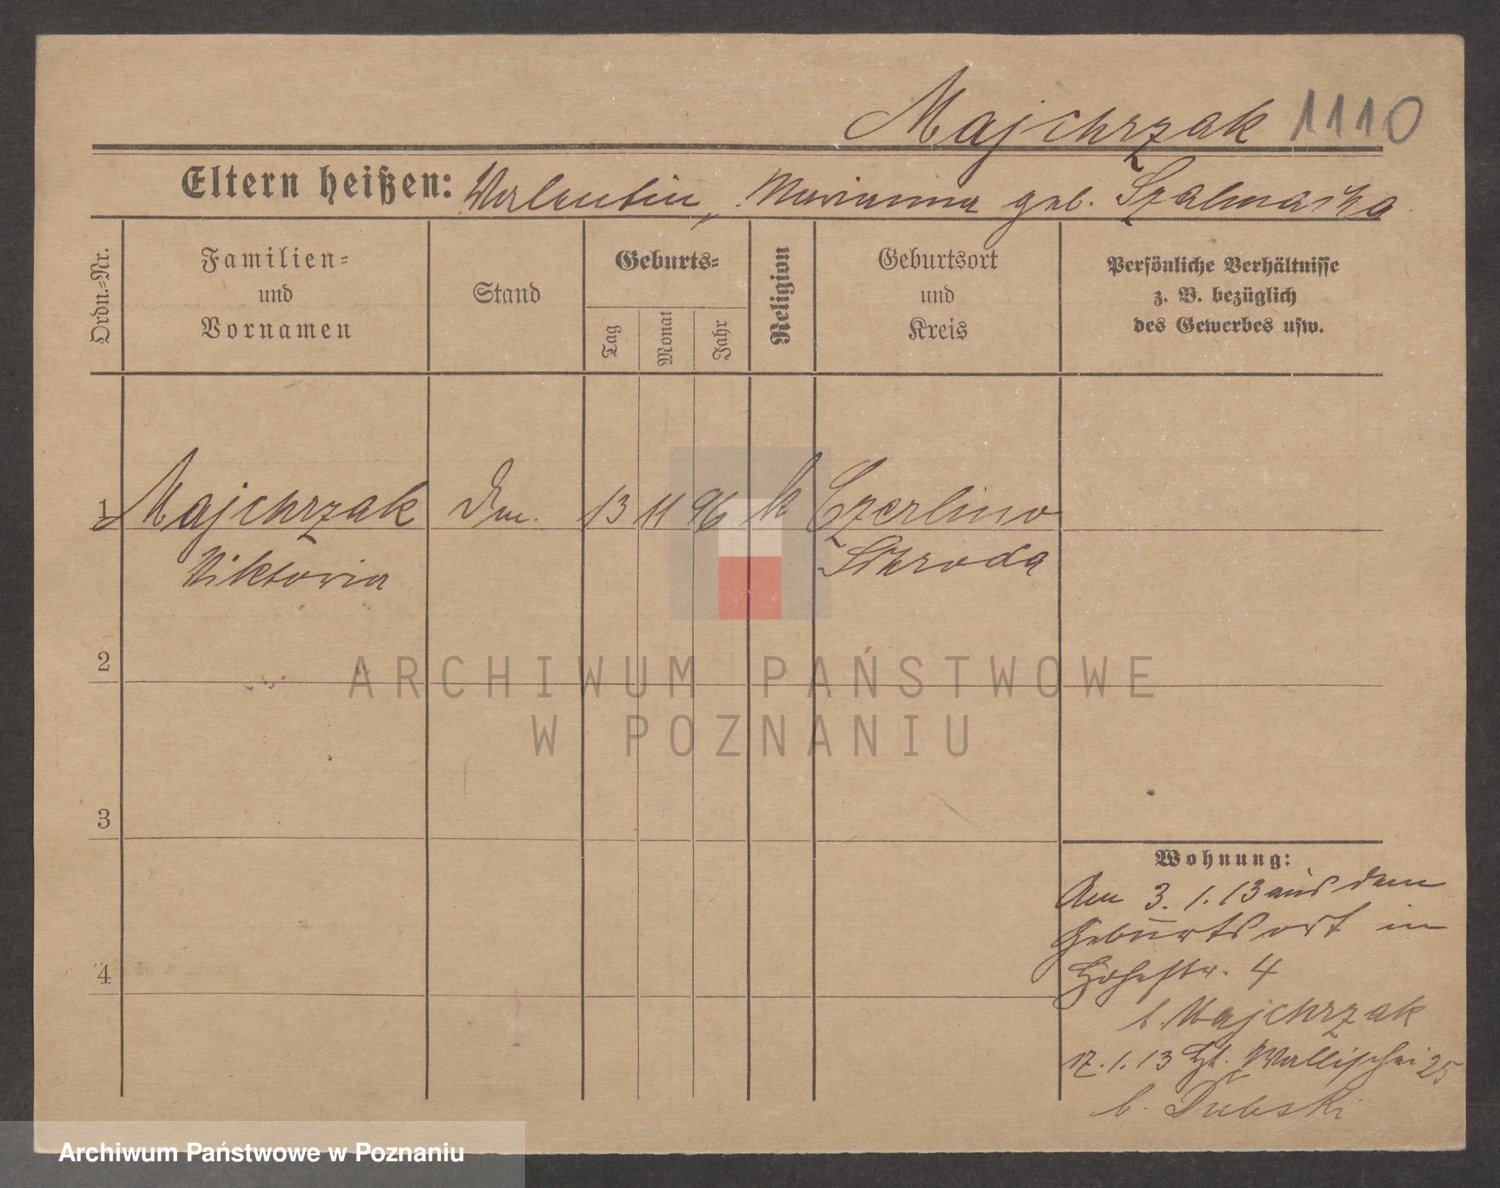 Majchrzak 1110
Eltern heißen: Valentin, Marianna geb. Szalmaska
Ordn.-Nr.
Familien-
und
Vornamen
Stand
Geburts-
Tag
Monat
Jahr
Religion
Geburtsort
und
Kreis
Persönliche Verhältnisse
z. B. bezüglich
des Gewerbes usw.
1 Majchrzak 13 11 96 k Czerlino
Viktoria Schroda
2
ARCHIWUM PAŃSTWOWE
W POZNANIU
3
4
Wohnung:
Am 3. 1. 13 aus dem
Geburtsort in
Hohestr. 4
b Majchrzak
17. 1. 13 Wallischei 25
b. Dubski
Archiwum Państwowe w Poznaniu